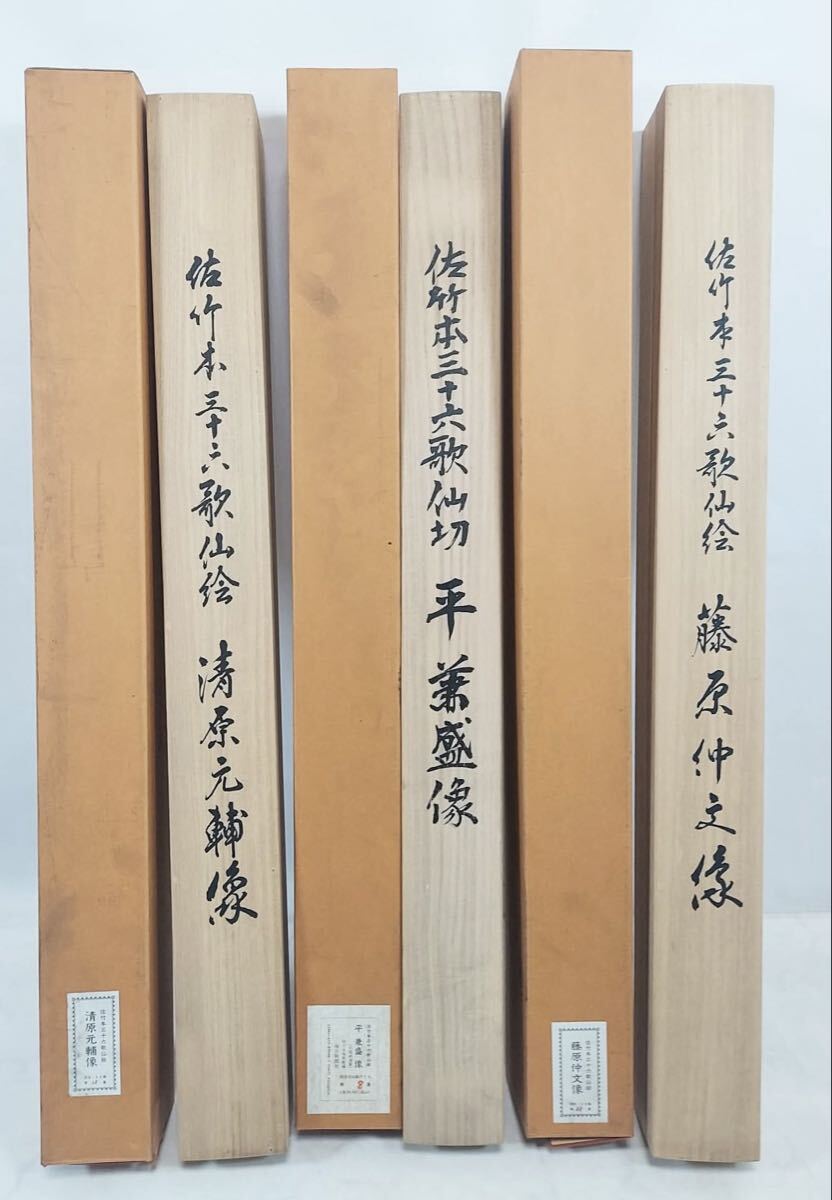 佐竹本三十六歌仙絵 清原元輔像
佐竹本三十六歌仙切 平兼盛像
佐竹本三十六歌仙絵 藤原仲文像
佐竹本三十六歌仙絵
清原元輔像
佐竹本三十六歌仙切
平兼盛像
佐竹本三十六歌仙絵
藤原仲文像